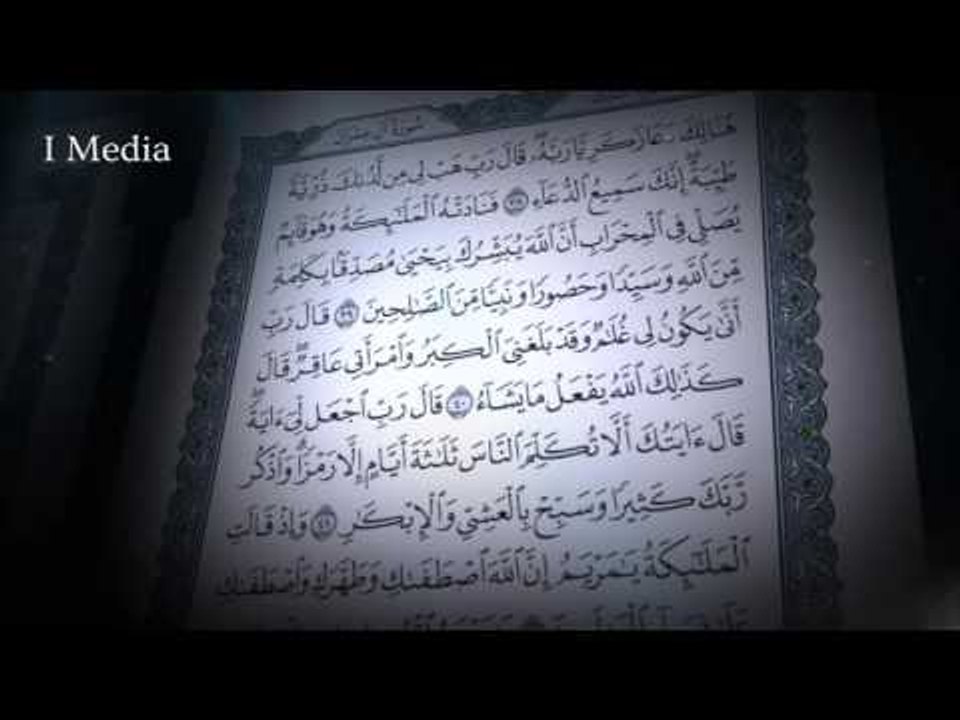 I Media
سورة آل عمران
هُنَالِكَ دَعَا زَكَرِيَّا رَبَّهُۥ قَالَ رَبِّ هَبْ لِى مِن لَّدُنكَ ذُرِّيَّةً
طَيِّبَةً إِنَّكَ سَمِيعُ ٱلدُّعَآءِ ٣٨ فَنَادَتْهُ ٱلْمَلَـٰٓئِكَةُ وَهُوَ قَآئِمٌ
يُصَلِّى فِى ٱلْمِحْرَابِ أَنَّ ٱللَّهَ يُبَشِّرُكَ بِيَحْيَىٰ مُصَدِّقًۢا بِكَلِمَةٍ
مِّنَ ٱللَّهِ وَسَيِّدًا وَحَصُورًا وَنَبِيًّا مِّنَ ٱلصَّـٰلِحِينَ ٣٩ قَالَ رَبِّ
أَنَّىٰ يَكُونُ لِى غُلَـٰمٌ وَقَدْ بَلَغَنِىَ ٱلْكِبَرُ وَٱمْرَأَتِى عَاقِرٌ قَالَ
كَذَٰلِكَ ٱللَّهُ يَفْعَلُ مَا يَشَآءُ ٤٠ قَالَ رَبِّ ٱجْعَل لِّىٓ ءَايَةً
قَالَ ءَايَتُكَ أَلَّا تُكَلِّمَ ٱلنَّاسَ ثَلَـٰثَةَ أَيَّامٍ إِلَّا رَمْزًا وَٱذْكُر
رَّبَّكَ كَثِيرًا وَسَبِّحْ بِٱلْعَشِىِّ وَٱلْإِبْكَـٰرِ ٤١ وَإِذْ قَالَتِ
ٱلْمَلَـٰٓئِكَةُ يَـٰمَرْيَمُ إِنَّ ٱللَّهَ ٱصْطَفَىٰكِ وَطَهَّرَكِ وَٱصْطَفَىٰكِ